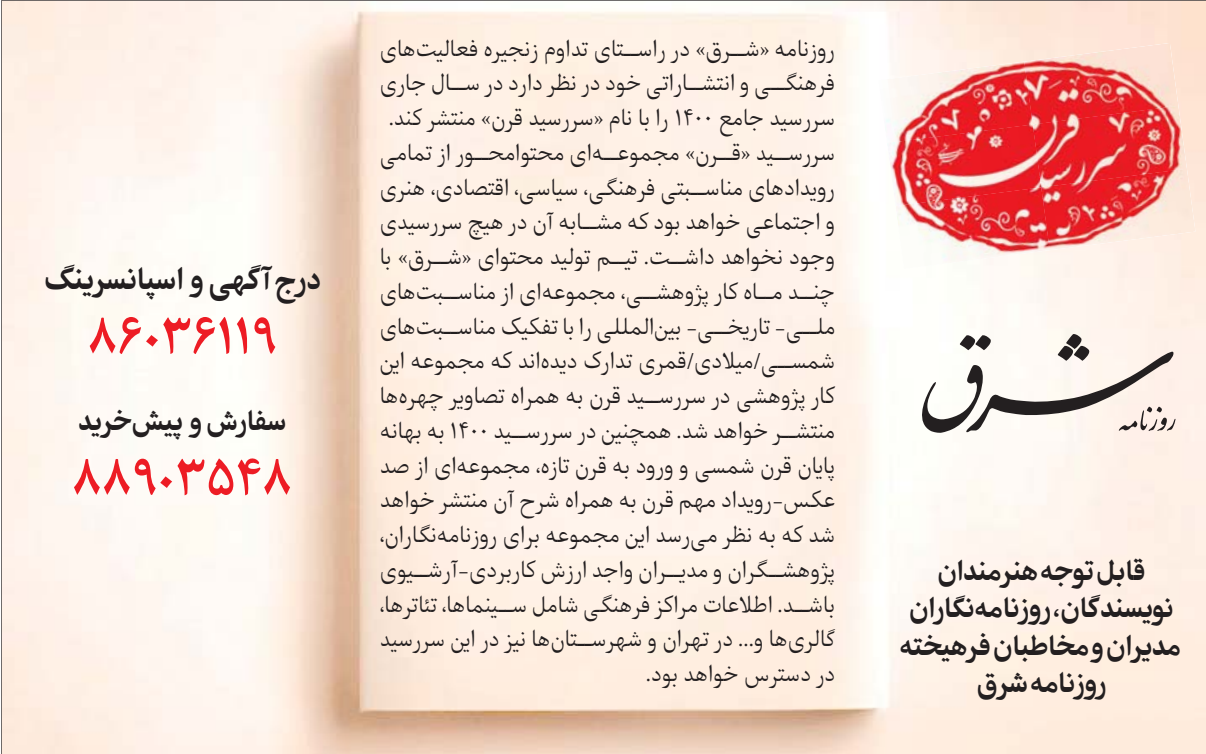 سررسید قرن
روزنامه شرق
قابل توجه هنرمندان
نویسندگان، روزنامه‌نگاران
مدیران و مخاطبان فرهیخته
روزنامه شرق
روزنامه «شرق» در راستای تداوم زنجیره فعالیت‌های
فرهنگی و انتشاراتی خود در نظر دارد در سال جاری
سررسید جامع ۱۴۰۰ را با نام «سررسید قرن» منتشر کند.
سررسید «قرن» مجموعه‌ای محتوامحور از تمامی
رویدادهای مناسبتی فرهنگی، سیاسی، اقتصادی، هنری
و اجتماعی خواهد بود که مشابه آن در هیچ سررسیدی
وجود نخواهد داشت. تیم تولید محتوای «شرق» با
چند ماه کار پژوهشی، مجموعه‌ای از مناسبت‌های
ملی- تاریخی- بین‌المللی را با تفکیک مناسبت‌های
شمسی/میلادی/قمری تدارک دیده‌اند که مجموعه این
کار پژوهشی در سررسید قرن به همراه تصاویر چهره‌ها
منتشر خواهد شد. همچنین در سررسید ۱۴۰۰ به بهانه
پایان قرن شمسی و ورود به قرن تازه، مجموعه‌ای از صد
عکس-رویداد مهم قرن به همراه شرح آن منتشر خواهد
شد که به نظر می‌رسد این مجموعه برای روزنامه‌نگاران،
پژوهشگران و مدیران واجد ارزش کاربردی-آرشیوی
باشد. اطلاعات مراکز فرهنگی شامل سینماها، تئاترها،
گالری‌ها و... در تهران و شهرستان‌ها نیز در این سررسید
در دسترس خواهد بود.
درج آگهی و اسپانسرینگ
۸۶۰۳۶۱۱۹
سفارش و پیش‌خرید
۸۸۹۰۳۵۴۸